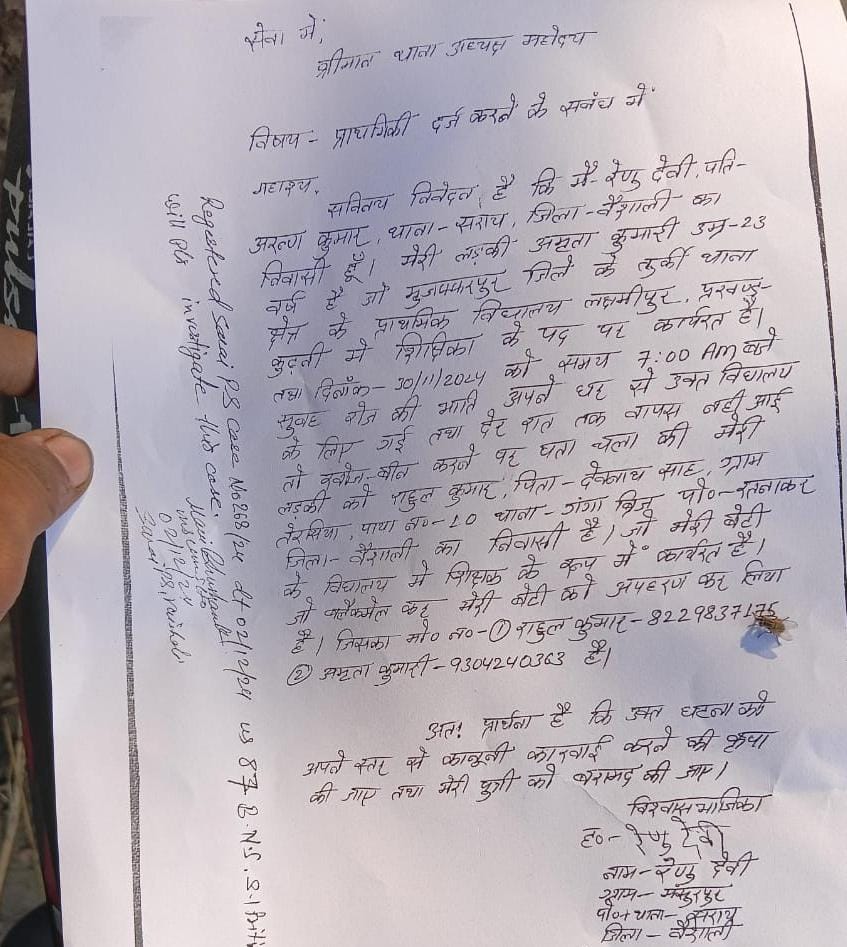 सेवा में,
श्रीमान थाना अध्यक्ष महोदय
विषय - प्राथमिकी दर्ज करने के संबंध में
महाशय,
सविनय निवेदन है कि मैं - रेणु देवी, पति-
अरूण कुमार, थाना - सराय, जिला - वैशाली का
निवासी हूँ। मेरी लड़की अमृता कुमारी उम्र-23
वर्ष है जो मुजफ्फरपुर जिले के तुर्की थाना
क्षेत्र के प्राथमिक विद्यालय लक्ष्मीपुर, प्रखण्ड-
कुढ़नी मे शिक्षिका के पद पर कार्यरत है।
तथा दिनाँक - 30/11/2024 को समय 7:00 AM बजे
सुबह रोज की भाति अपने घर से उक्त विद्यालय
के लिए गई तथा देर रात तक वापस नही आई
तो खोज-बीन करने पर पता चला की मेरी
लड़की को राहुल कुमार, पिता - देवनाथ साह, ग्राम
तेरसिया, पाया न०-10 थाना - गंगा ब्रिज पो०-
जिला - वैशाली का निवासी है। जो मेरी बेटी
के विद्यालय मे शिक्षक के रूप में कार्यरत है।
जो ब्लैकमेल कर मेरी बेटी को अपहरण कर लिया
है। जिसका मो० न०-① राहुल कुमार - 8229837175
② अमृता कुमारी - 9304240363 है।
अत! प्रार्थना है कि उक्त घटना को
अपने स्तर से कानूनी कारवाई करने की कृपा
की जाए तथा मेरी पुत्री को बरामद की जाए।
विश्वासभाजिका
ह० - रेणु देवी
नाम - रेणु देवी
ग्राम -
पो०+थाना - सराय
जिला - वैशाली
Registered Sarai PS Case No 268/24 dt 02/12/24 u/s 87 B.N.S.
will pls investigate this case.
02/12/24
pulsar